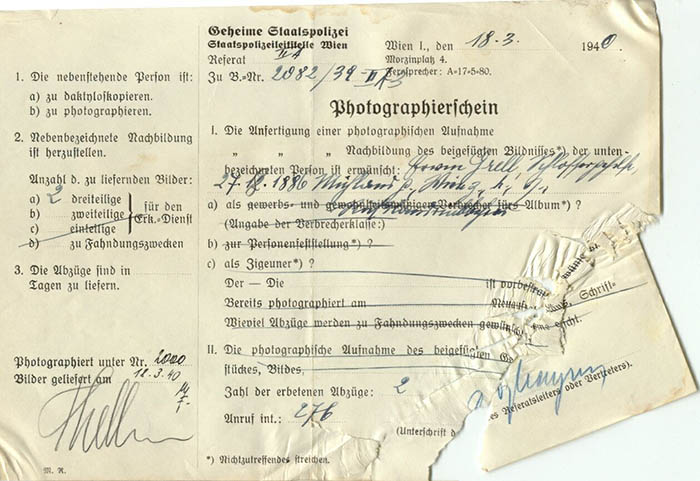 Geheime Staatspolizei
Staatspolizeileitstelle Wien
Referat II A
Zu B.-Nr. 2082/39
Wien I., den 18.3. 1940
Morzinplatz 4.
Fernsprecher: A=17=5=80.
1. Die nebenstehende Person ist:
a) zu daktyloskopieren.
b) zu photographieren.
2. Nebenbezeichnete Nachbildung
ist herzustellen.
Anzahl d. zu liefernden Bilder:
a) 2 dreiteilige
b) zweiteilige
c) einteilige
für den
Erk.=Dienst
d) zu Fahndungszwecken
3. Die Abzüge sind in
Tagen zu liefern.
Photographiert unter Nr. 2000
Bilder geliefert am 18.3.40
M. R.
Photographierschein
I. Die Anfertigung einer photographischen Aufnahme
„ „ „ Nachbildung des beigefügten Bildnisses*) der unten-
bezeichneten Person ist erwünscht: Erwin
27. 1886
a) als gewerbs- und gewohnheitsmäßigen Verbrecher fürs Album*) ?
(Angabe der Verbrecherklasse:)
b) zur Personenfeststellung*) ?
c) als Zigeuner*) ?
Der — Die ist vorbestraft
Bereits photographiert am
Schrift-
Wieviel Abzüge werden zu Fahndungszwecken
II. Die photographische Aufnahme des beigefügten
stückes, Bildes,
Zahl der erbetenen Abzüge: 2
Anruf int.: 276
(Unterschrift d es Referatsleiters oder Vertreters).
*) Nichtzutreffendes streichen.